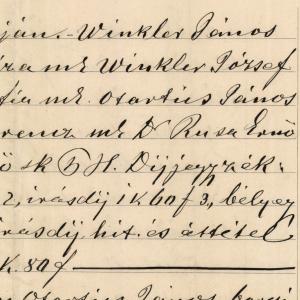 ján. - Winkler János
za mk Winkler József
fia mk. Otartics János
rencz mk Dr Rusa Ernő
ő sk P. H. Díjjegyzék:
2, irásdij 1 k 60 f 3, bélyeg
irásdij hit. és áttétel
K. 80 f
Otartics János